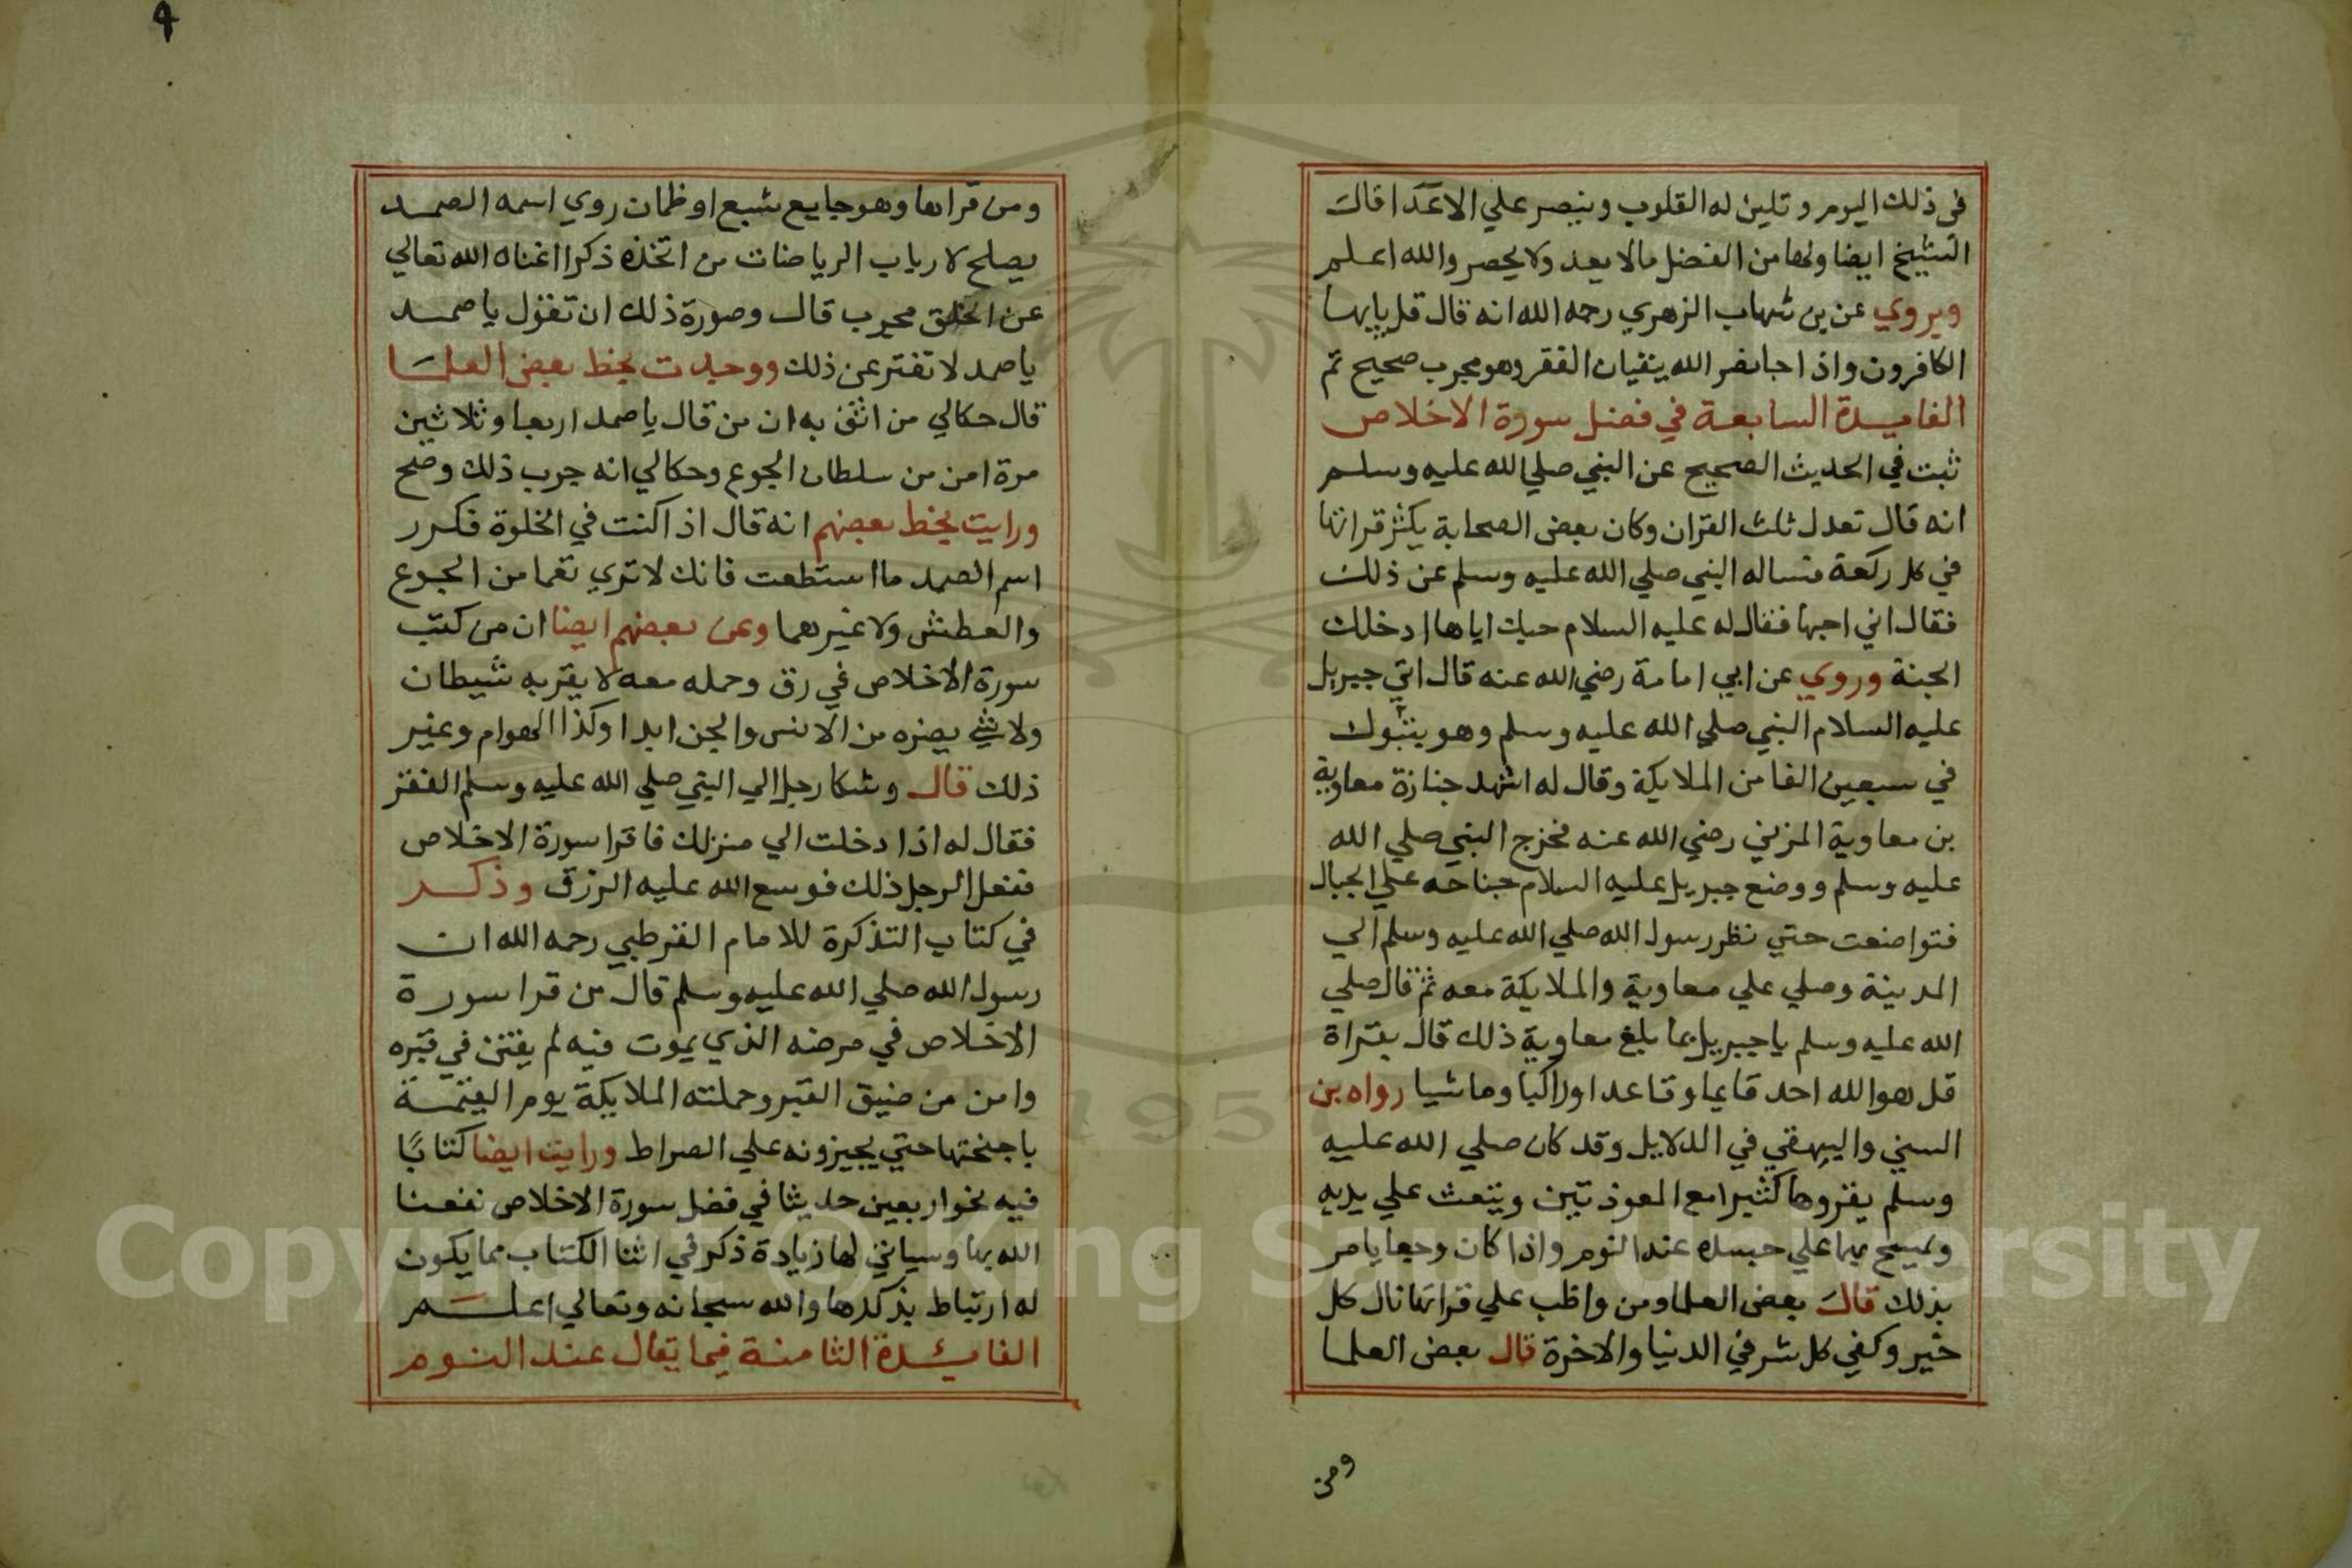 في ذلك اليوم وتلين له القلوب وينصر علي الاعدا قال
الشيخ ايضا ولها من الفضل مالا يعد ولا يحصر والله اعلم
ويروي عن بن شهاب الزهري رحمه الله انه قال قل يايها
الكافرون واذا جا نصر الله ينفيان الفقر وهو مجرب صحيح تم
الفايدة السابعة في فضل سورة الاخلاص
ثبت في الحديث الصحيح عن النبي صلي الله عليه وسلم
انه قال تعدل ثلث القران وكان بعض الصحابة يكثر قراتها
في كل ركعة فساله النبي صلي الله عليه وسلم عن ذلك
فقال اني احبها فقال له عليه السلام حبك اياها ادخلك
الجنة وروي عن ابي امامة رضي الله عنه قال اتي جبريل
عليه السلام النبي صلي الله عليه وسلم وهو بتبوك
في سبعين الفا من الملايكة وقال له اشهد جنازة معاوية
بن معاوية المزني رضي الله عنه فخرج النبي صلي الله
عليه وسلم ووضع جبريل عليه السلام جناحه علي الجبال
فتواضعت حتي نظر رسول الله صلي الله عليه وسلم الي
المدينة وصلي علي معاوية والملايكة معه ثم قال صلي
الله عليه وسلم يا جبريل بما بلغ معاوية ذلك قال بقراة
قل هو الله احد قايما وقاعدا وراكبا وماشيا رواه بن
السني والبيهقي في الدلايل وقد كان صلي الله عليه
وسلم يقروها كثيرا مع المعوذتين وينفث علي يديه
ويمسح بهما علي جسده عند النوم واذا كان وجعا يامر
بذلك قال بعض العلما ومن واظب علي قراتها نال كل
خير وكفي كل شر في الدنيا والاخرة قال بعض العلما
ومن
٩
ومن قراها وهو جايع شبع او ظمان روي اسمه الصمد
يصلح لارباب الرياضات من اتخذه ذكرا اغناه الله تعالي
عن الخلق مجرب قال وصورة ذلك ان تقول يا صمد
يا صمد لا تفتر عن ذلك ووجدت بخط بعض العلما
قال حكالي من اثق به ان من قال يا صمد اربعا وثلاثين
مرة امن من سلطان الجوع وحكالي انه جرب ذلك وصح
ورايت بخط بعضهم انه قال اذا كنت في الخلوة فكرر
اسم الصمد ما استطعت فانك لا تري تعما من الجوع
والعطش ولا غيرهما وعن بعضهم ايضا ان من كتب
سورة الاخلاص في رق وحمله معه لا يقربه شيطان
ولا شي يضره من الانس والجن ابدا وكذا الهوام وغير
ذلك قال وشكا رجل الي النبي صلي الله عليه وسلم الفقر
فقال له اذا دخلت الي منزلك فاقرا سورة الاخلاص
ففعل الرجل ذلك فوسع الله عليه الرزق وذكر
في كتاب التذكرة للامام القرطبي رحمه الله ان
رسول الله صلي الله عليه وسلم قال من قرا سورة
الاخلاص في مرضه الذي يموت فيه لم يفتن في قبره
وامن من ضيق القبر وحملته الملايكة يوم القيمة
باجنحتها حتي يجيزونه علي الصراط ورايت ايضا كتابًا
فيه نحو اربعين حديثا في فضل سورة الاخلاص نفعنا
الله بها وسياتي لها زيادة ذكر في اثنا الكتاب مما يكون
له ارتباط بذكرها والله سبحانه وتعالي اعلم
الفائدة الثامنة فيما يقال عند النوم
Copyright © King Saud University
195